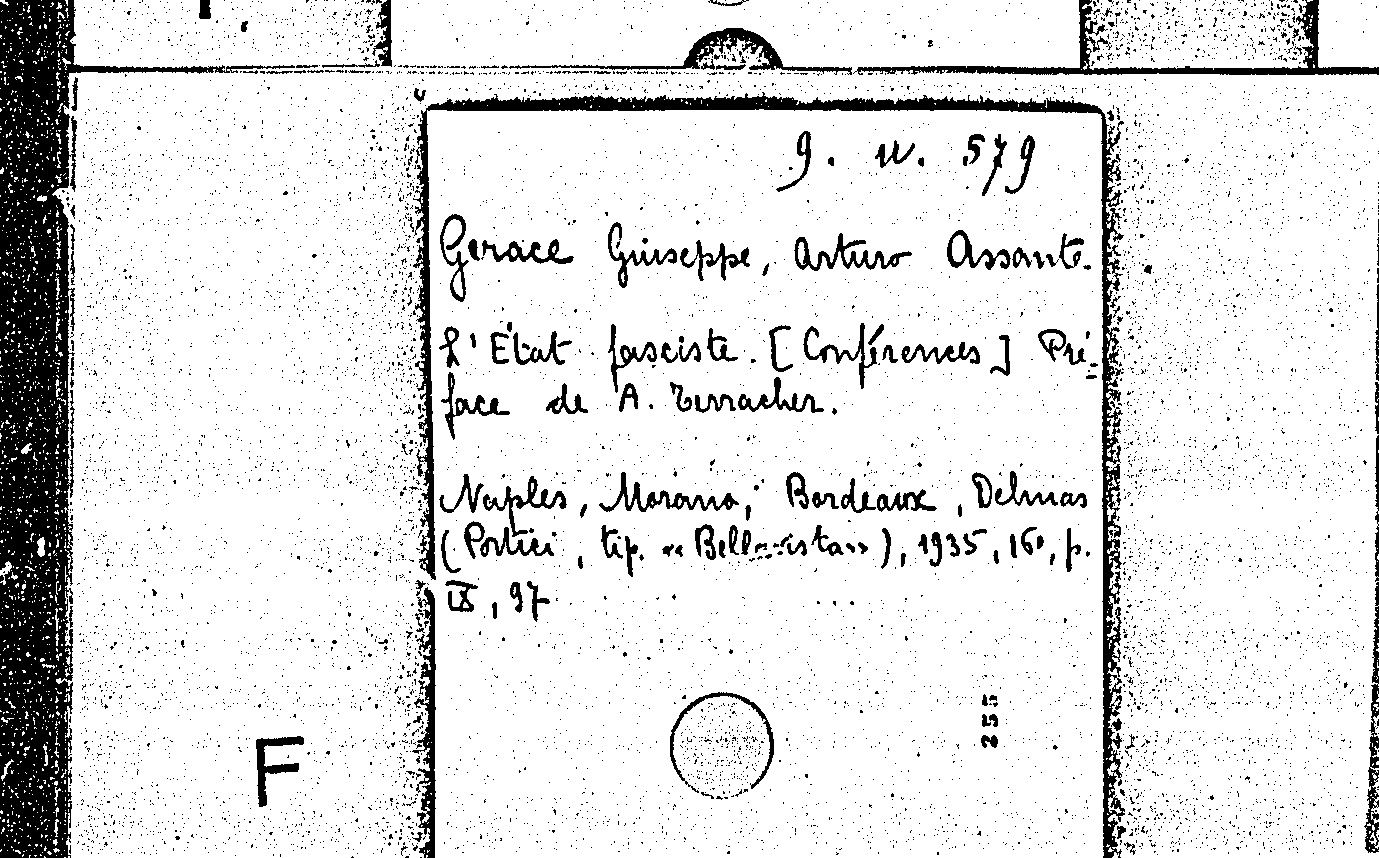 9. w. 579
Gerace Giuseppe, Arturo Assante.
L'Etat fasciste. [Conférences] Pré-
face de A. Terracher.
Naples, Morano; Bordeaux, Delmas
(Portici, tip. «Bellavista»), 1935, 16º, p.
IX, 97
255
F